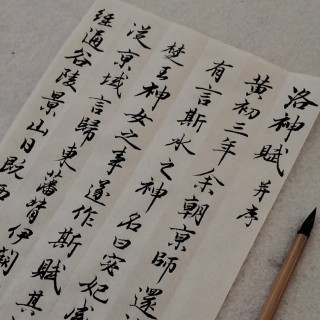 洛神賦 并序
黄初三年余朝京師還
有言斯水之神名曰宓妃感
楚王神女之事遂作斯賦其
從京域言歸東藩背伊闕
經通谷陵景山日既西